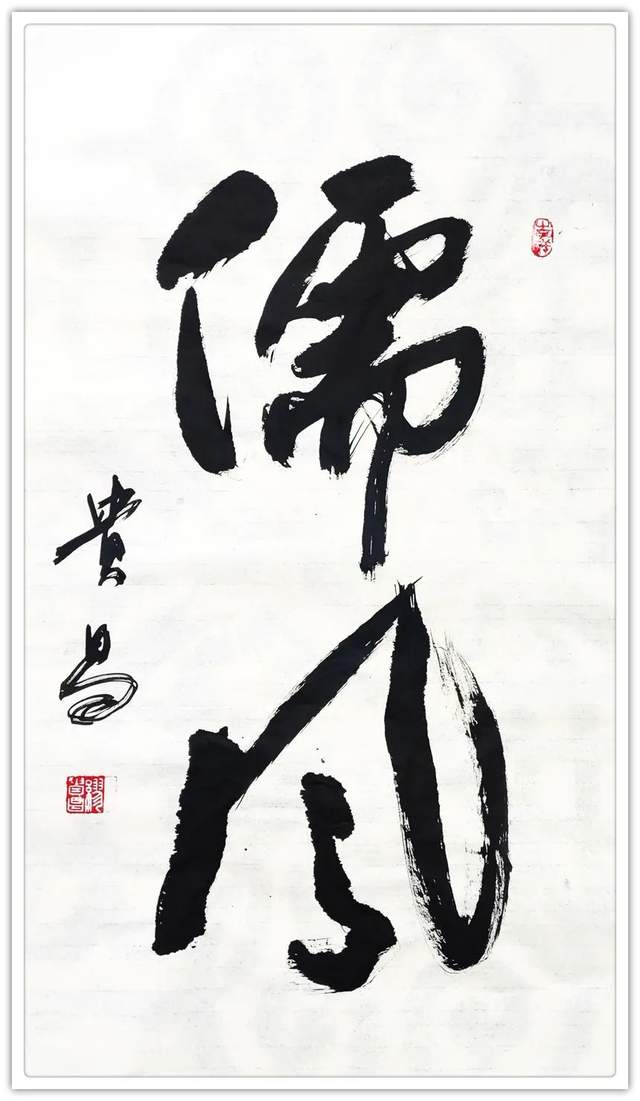 儒风
贵昌